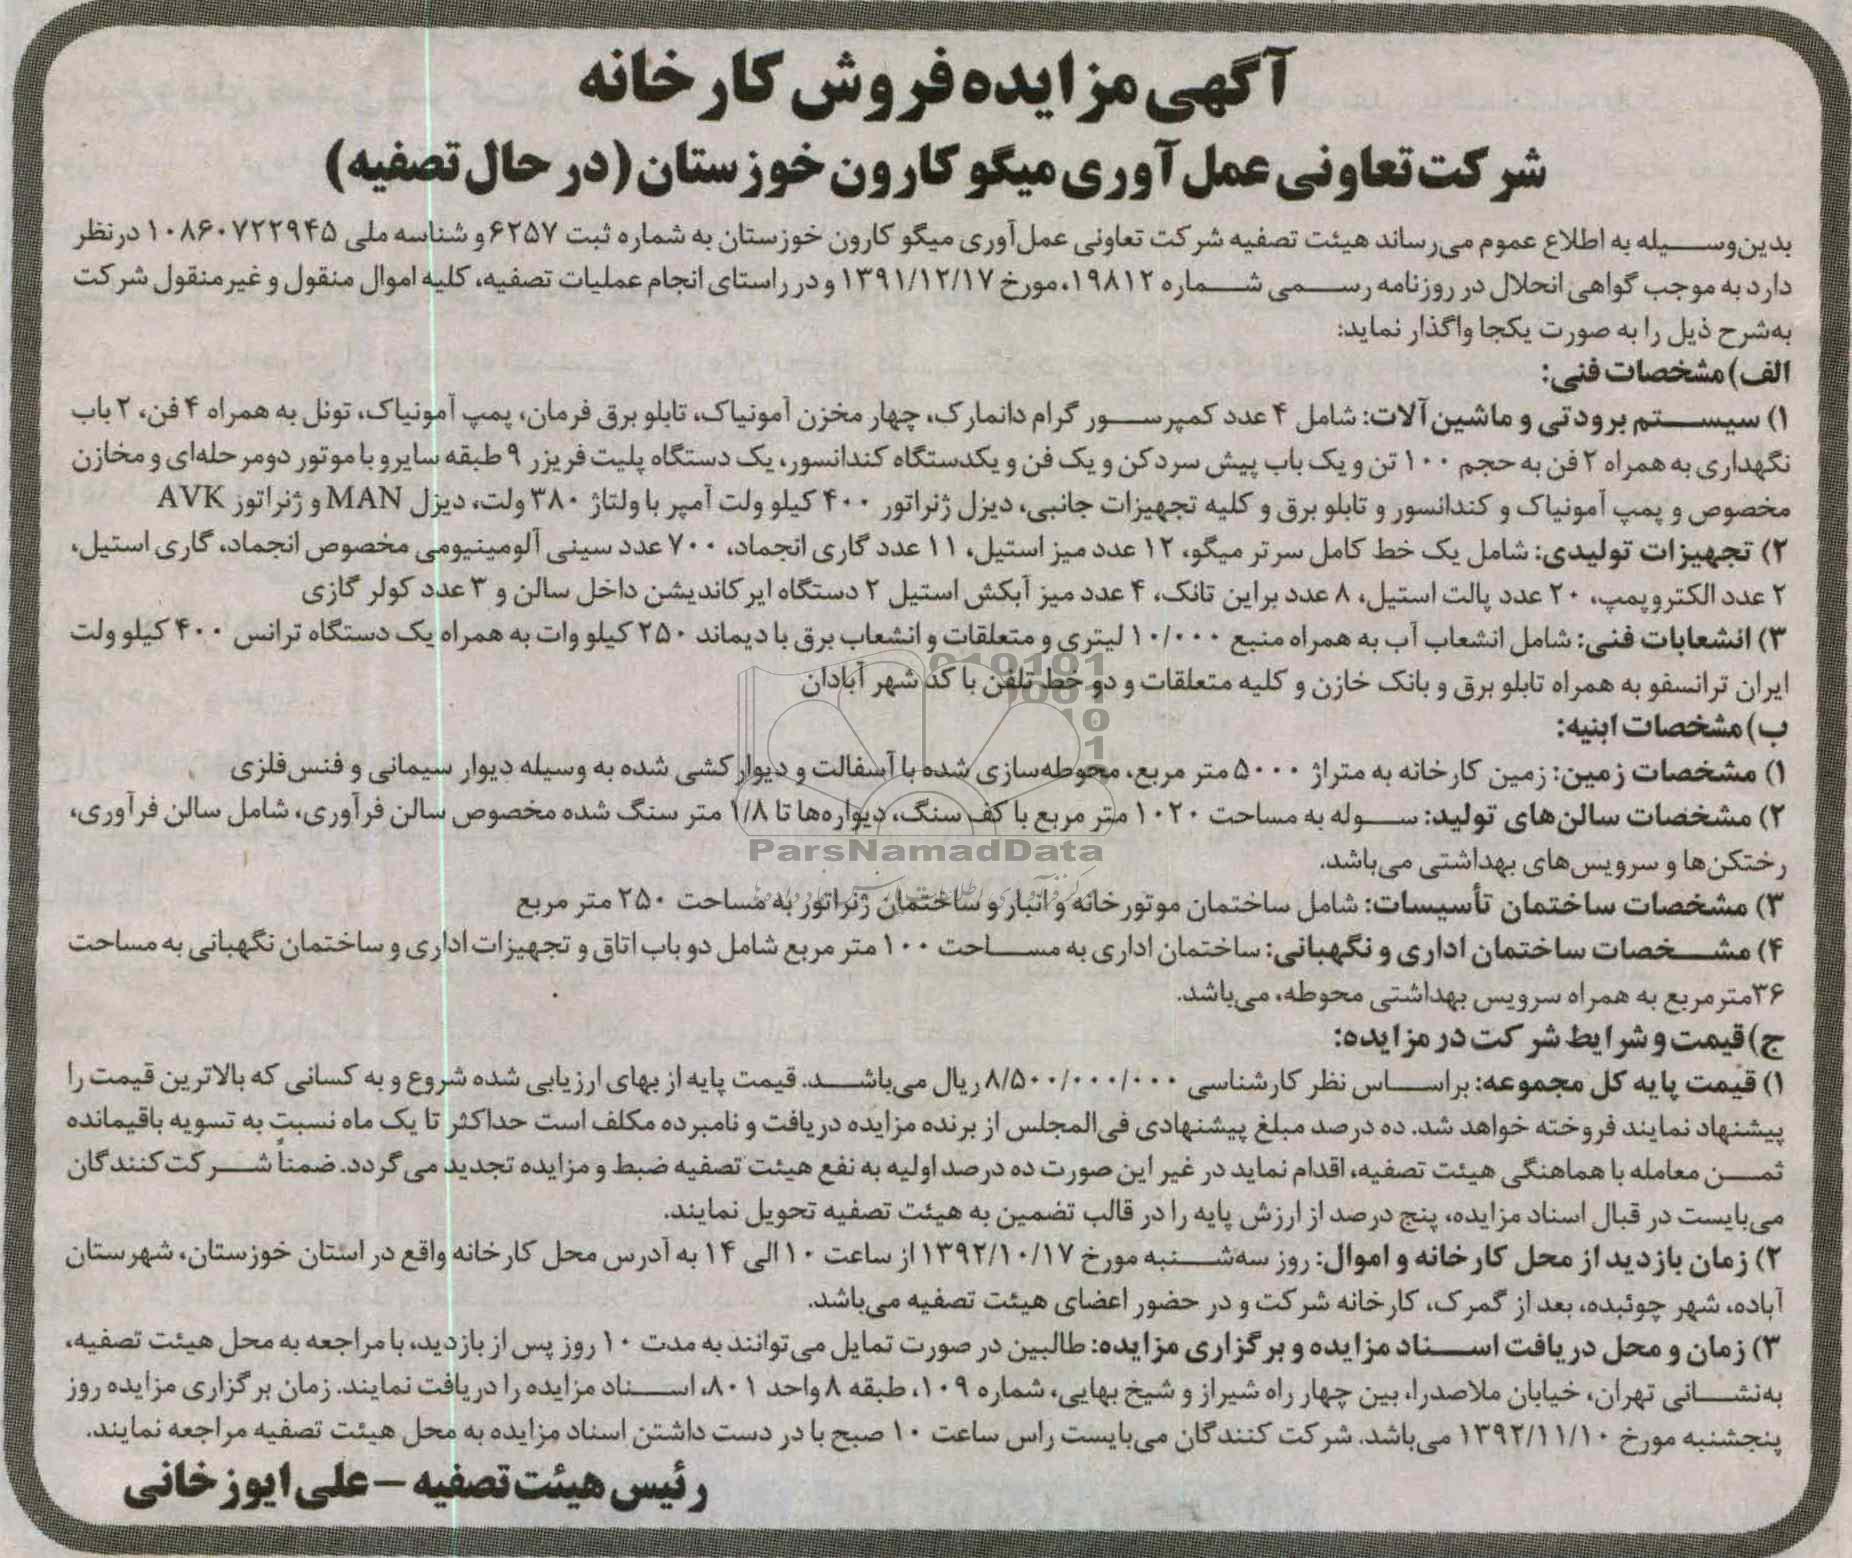 آگهی مزایده فروش کارخانه
شرکت تعاونی عمل آوری میگو کارون خوزستان (در حال تصفیه)
بدین‌وسیله به اطلاع عموم می‌رساند هیئت تصفیه شرکت تعاونی عمل‌آوری میگو کارون خوزستان به شماره ثبت ۶۲۵۷ و شناسه ملی ۱۰۸۶۰۷۲۲۹۴۵ درنظر
دارد به موجب گواهی انحلال در روزنامه رسمی شماره ۱۹۸۱۲، مورخ ۱۳۹۱/۱۲/۱۷ و در راستای انجام عملیات تصفیه، کلیه اموال منقول و غیرمنقول شرکت
به‌شرح ذیل را به صورت یکجا واگذار نماید:
الف) مشخصات فنی:
۱) سیستم برودتی و ماشین‌آلات: شامل ۴ عدد کمپرسور گرام دانمارک، چهار مخزن آمونیاک، تابلو برق فرمان، پمپ آمونیاک، تونل به همراه ۴ فن، ۲ باب
نگهداری به همراه ۲ فن به حجم ۱۰۰ تن و یک باب پیش سردکن و یک فن و یکدستگاه کندانسور، یک دستگاه پلیت فریزر ۹ طبقه سایرو با موتور دومرحله‌ای و مخازن
مخصوص و پمپ آمونیاک و کندانسور و تابلو برق و کلیه تجهیزات جانبی، دیزل ژنراتور ۴۰۰ کیلو ولت آمپر با ولتاژ ۳۸۰ ولت، دیزل MAN و ژنراتور AVK
۲) تجهیزات تولیدی: شامل یک خط کامل سرتر میگو، ۱۲ عدد میز استیل، ۱۱ عدد گاری انجماد، ۷۰۰ عدد سینی آلومینیومی مخصوص انجماد، گاری استیل،
۲ عدد الکتروپمپ، ۲۰ عدد پالت استیل، ۸ عدد براین تانک، ۴ عدد میز آبکش استیل ۲ دستگاه ایرکاندیشن داخل سالن و ۳ عدد کولر گازی
۳) انشعابات فنی: شامل انشعاب آب به همراه منبع ۱۰/۰۰۰ لیتری و متعلقات و انشعاب برق با دیماند ۲۵۰ کیلو وات به همراه یک دستگاه ترانس ۴۰۰ کیلو ولت
ایران ترانسفو به همراه تابلو برق و بانک خازن و کلیه متعلقات و دو خط تلفن با کد شهر آبادان
ب) مشخصات ابنیه:
۱) مشخصات زمین: زمین کارخانه به متراژ ۵۰۰۰ متر مربع، محوطه‌سازی شده با آسفالت و دیوارکشی شده به وسیله دیوار سیمانی و فنس‌فلزی
۲) مشخصات سالن‌های تولید: سوله به مساحت ۱۰۲۰ متر مربع با کف سنگ، دیواره‌ها تا ۱/۸ متر سنگ شده مخصوص سالن فرآوری، شامل سالن فرآوری،
رختکن‌ها و سرویس‌های بهداشتی می‌باشد.
۳) مشخصات ساختمان تأسیسات: شامل ساختمان موتورخانه و انبار و ساختمان ژنراتور به مساحت ۲۵۰ متر مربع
۴) مشخصات ساختمان اداری و نگهبانی: ساختمان اداری به مساحت ۱۰۰ متر مربع شامل دو باب اتاق و تجهیزات اداری و ساختمان نگهبانی به مساحت
۳۶ مترمربع به همراه سرویس بهداشتی محوطه، می‌باشد.
ج) قیمت و شرایط شرکت در مزایده:
۱) قیمت پایه کل مجموعه: براساس نظر کارشناسی ۸/۵۰۰/۰۰۰/۰۰۰ ریال می‌باشد. قیمت پایه از بهای ارزیابی شده شروع و به کسانی که بالاترین قیمت را
پیشنهاد نمایند فروخته خواهد شد. ده درصد مبلغ پیشنهادی فی‌المجلس از برنده مزایده دریافت و نامبرده مکلف است حداکثر تا یک ماه نسبت به تسویه باقیمانده
ثمن معامله با هماهنگی هیئت تصفیه، اقدام نماید در غیر این صورت ده درصد اولیه به نفع هیئت تصفیه ضبط و مزایده تجدید می‌گردد. ضمناً شرکت‌کنندگان
می‌بایست در قبال اسناد مزایده، پنج درصد از ارزش پایه را در قالب تضمین به هیئت تصفیه تحویل نمایند.
۲) زمان بازدید از محل کارخانه و اموال: روز سه‌شنبه مورخ ۱۳۹۲/۱۰/۱۷ از ساعت ۱۰ الی ۱۴ به آدرس محل کارخانه واقع در استان خوزستان، شهرستان
آباده، شهر چوئبده، بعد از گمرک، کارخانه شرکت و در حضور اعضای هیئت تصفیه می‌باشد.
۳) زمان و محل دریافت اسناد مزایده و برگزاری مزایده: طالبین در صورت تمایل می‌توانند به مدت ۱۰ روز پس از بازدید، با مراجعه به محل هیئت تصفیه،
به‌نشانی تهران، خیابان ملاصدرا، بین چهار راه شیراز و شیخ بهایی، شماره ۱۰۹، طبقه ۸ واحد ۸۰۱، اسناد مزایده را دریافت نمایند. زمان برگزاری مزایده روز
پنجشنبه مورخ ۱۳۹۲/۱۱/۱۰ می‌باشد. شرکت کنندگان می‌بایست راس ساعت ۱۰ صبح با در دست داشتن اسناد مزایده به محل هیئت تصفیه مراجعه نمایند.
رئیس هیئت تصفیه – علی ایوزخانی
ParsNamadData